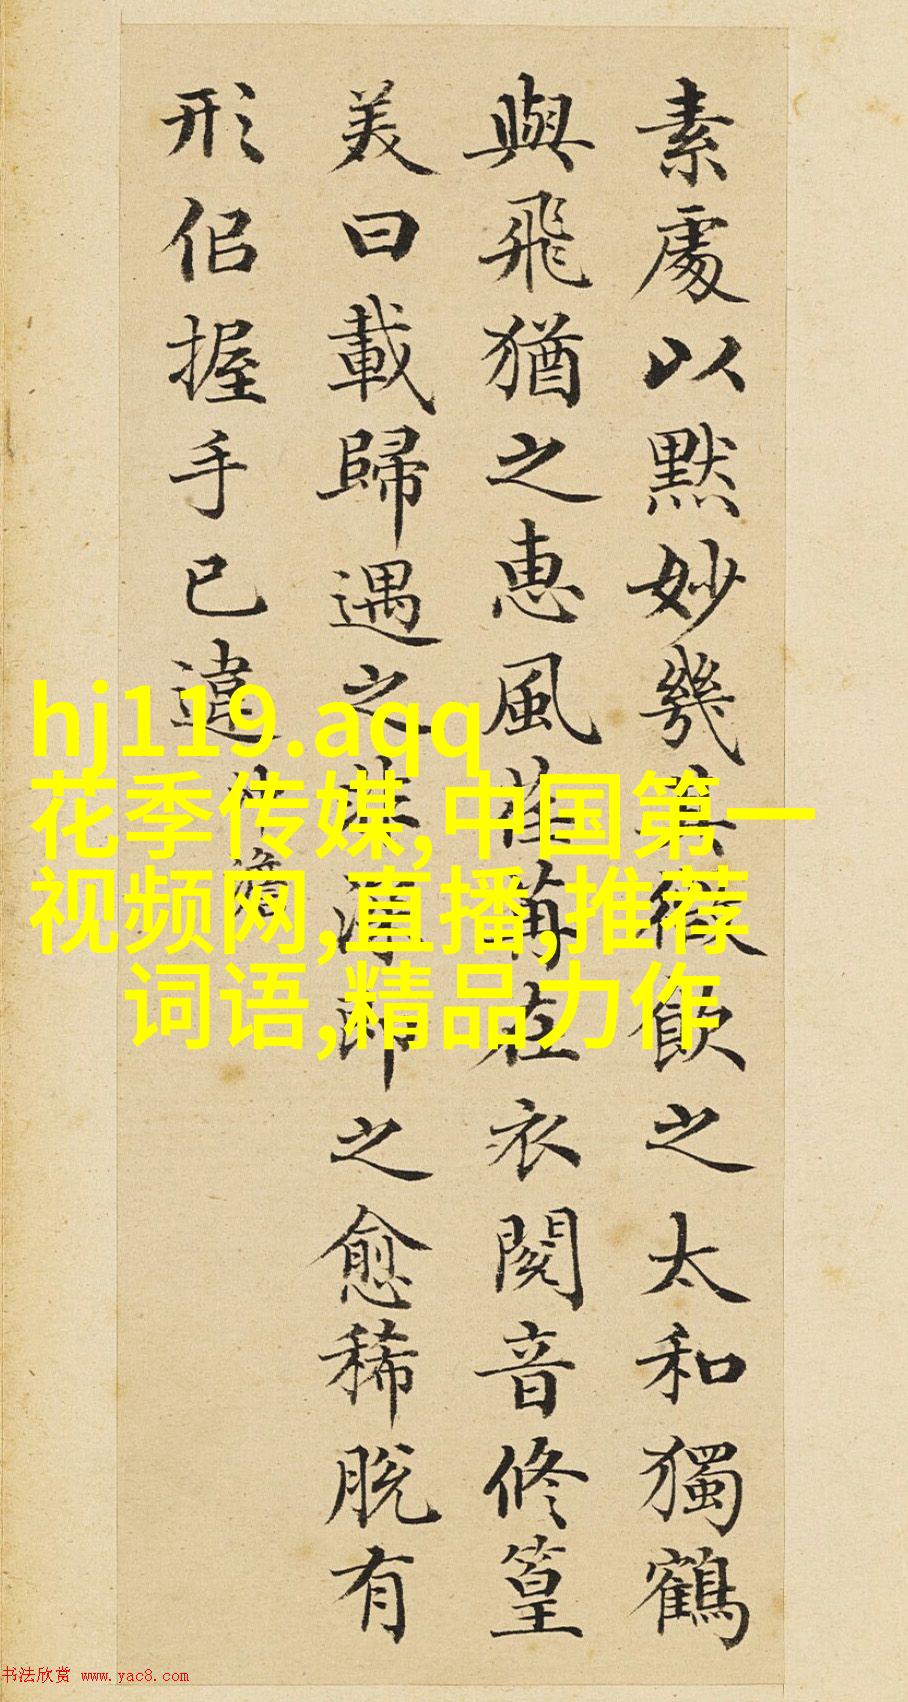 素處以默妙幾其微飲之太和獨鶴
與飛猶之惠風荏苒在衣閱音修篁
美曰載歸遇之匪深即之愈稀脫有
形佀握手已違 冲澹
hj119.aqq
花季传媒,中国第一
视频网,直播,推荐
词语,精品力作
书法欣赏 www.yac8.com